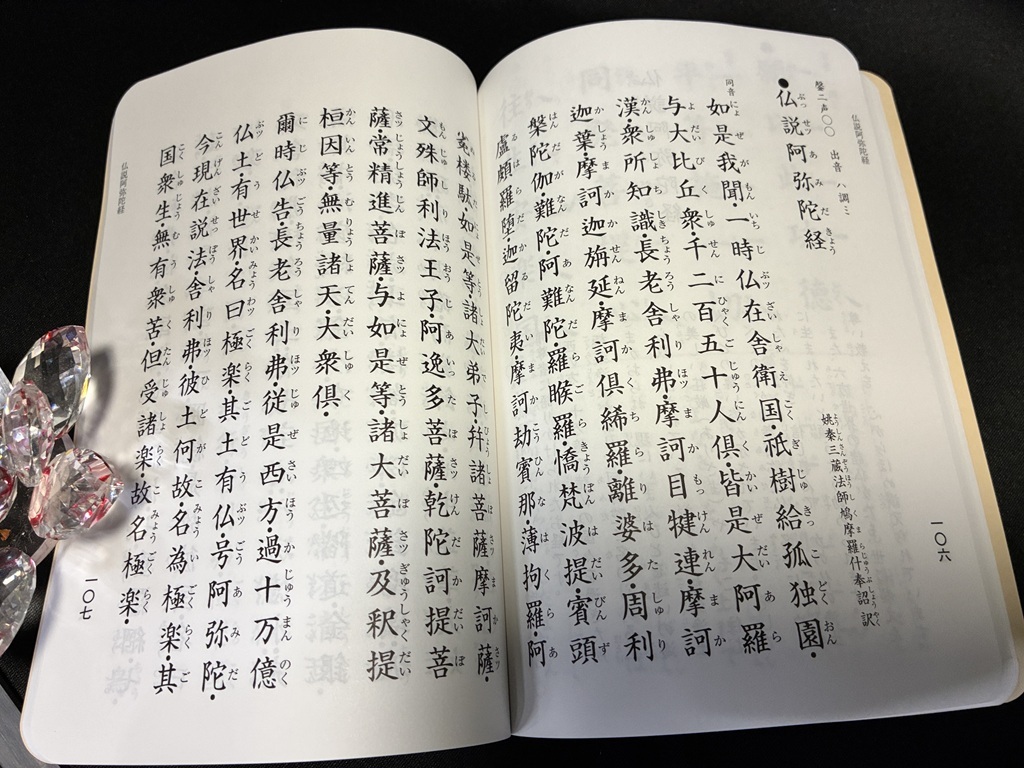 仏説阿弥陀経
一〇六
磬二声〇〇 出音 ハ調 ミ
●仏説阿弥陀経
姚秦三蔵法師鳩摩羅什奉詔訳
同音
如是我聞・一時仏在舎衛国・祇樹給孤独園・
与大比丘衆・千二百五十人倶・皆是大阿羅
漢・衆所知識・長老舎利弗・摩訶目犍連・摩訶
迦葉・摩訶迦旃延・摩訶倶絺羅・離婆多・周利
槃陀伽・難陀・阿難陀・羅睺羅・憍梵波提・賓頭
盧頗羅堕・迦留陀夷・摩訶劫賓那・薄拘羅・阿
㝹楼駄・如是等・諸大弟子・幷諸菩薩摩訶薩・
文殊師利法王子・阿逸多菩薩・乾陀訶提菩
薩・常精進菩薩・与如是等・諸大菩薩・及釈提
桓因等・無量諸天・大衆倶・
爾時仏告・長老舎利弗・従是西方・過十万億
仏土・有世界名曰極楽・其土有仏・号阿弥陀・
今現在説法・舎利弗・彼土何故・名為極楽・其
国衆生・無有衆苦・但受諸楽・故名極楽・
仏説阿弥陀経
一〇七